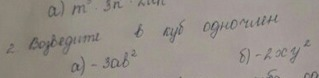 а) m² · 3n ·
2 Возведите в куб одночлен
а) -3ab² б) -2xy²